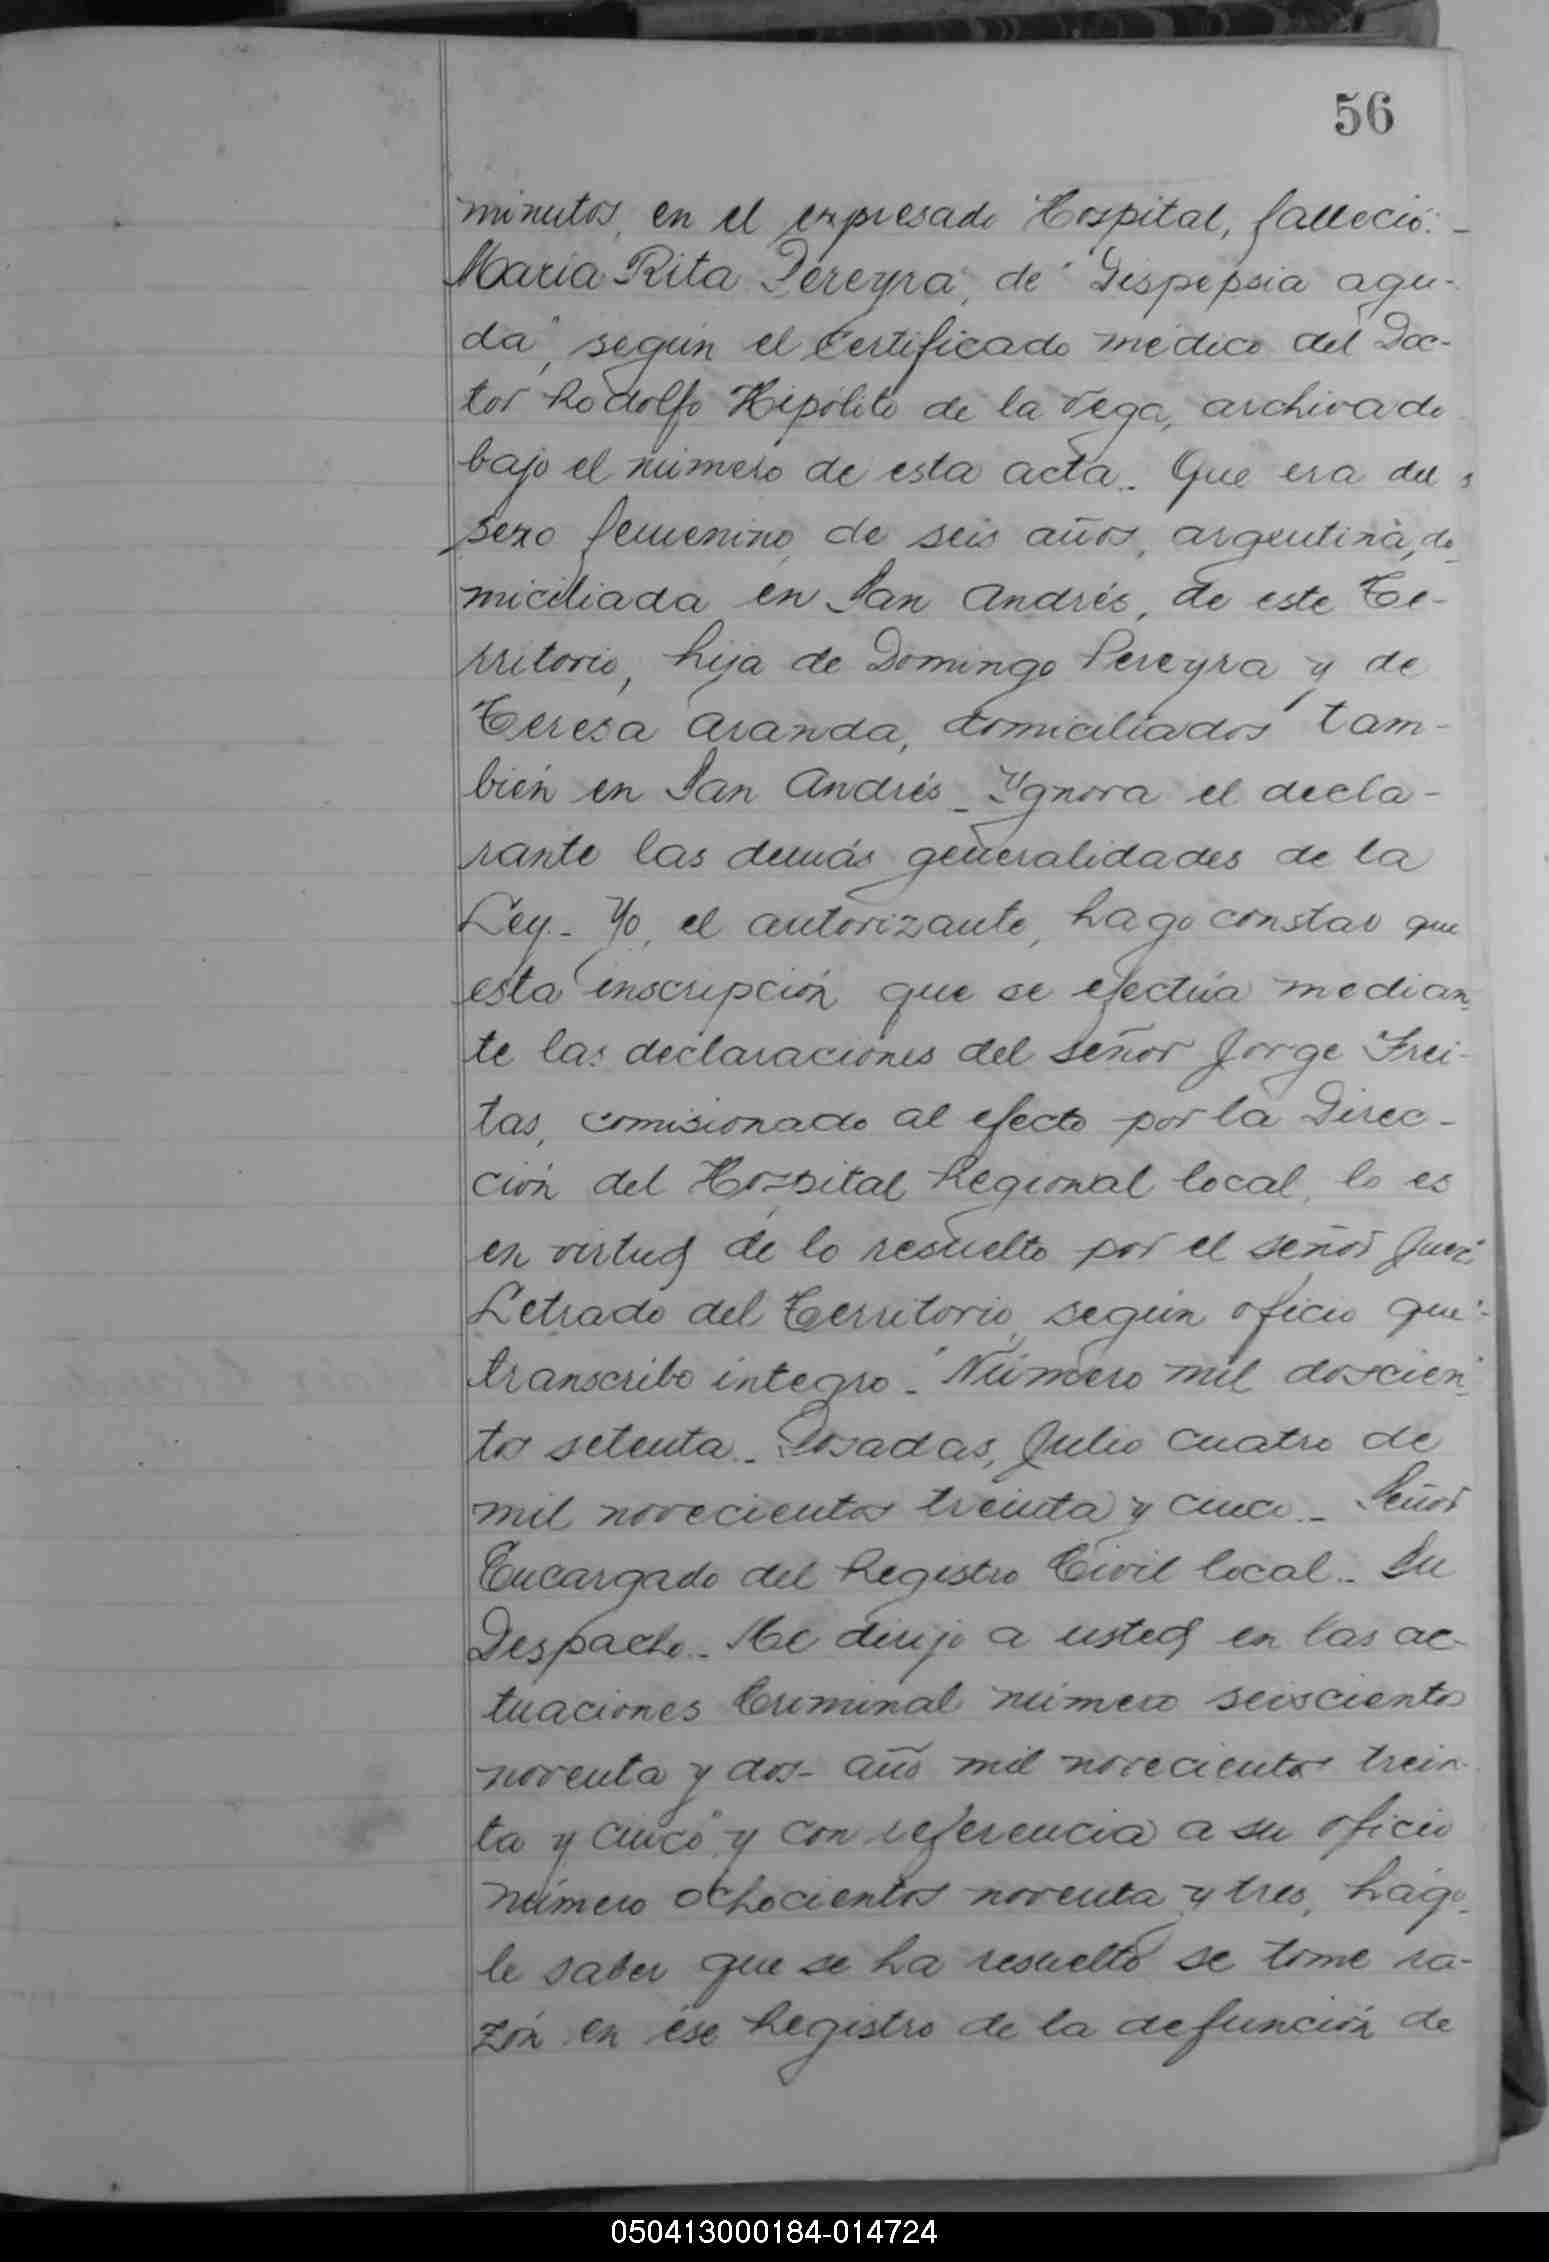 56
minutos, en el expresado Hospital, falleció: -
Maria Rita Pereyra, de "Dispepsia agu-
da", según el certificado médico del Doc-
tor Rodolfo Hipólito de la Vega, archivado
bajo el número de esta acta. Que era del
sexo femenino, de seis años, argentina, do-
miciliada en San Andrés, de este Te-
rritorio, hija de Domingo Pereyra y de
Teresa Aranda, domiciliados tam-
bién en San Andrés. Ignora el decla-
rante las demás generalidades de la
Ley. Yo, el autorizante, hago constar que
esta inscripción que se efectúa median-
te las declaraciones del señor Jorge Frei-
tas, comisionado al efecto por la Direc-
ción del Hospital Regional local, lo es
en virtud de lo resuelto por el señor Juez
Letrado del Territorio, según oficio que
transcribo íntegro. "Número mil doscien-
tos setenta. Posadas, Julio cuatro de
mil novecientos treinta y cinco. Señor
Encargado del Registro Civil local. Su
Despacho. Me dirijo a usted en las ac-
tuaciones Criminal número seiscientos
noventa y dos- año mil novecientos trein-
ta y cinco" y con referencia a su oficio
número ochocientos noventa y tres, hágo-
le saber que se ha resuelto se tome ra-
zón en ése Registro de la defunción de
050413000184-014724